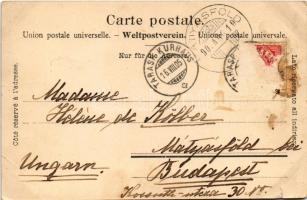 Carte postale.
Union postale universelle. – Weltpostverein. – Unione postale universale.
Nur für die
Côté réservé à l'adresse.
TARASP-KURHAUS
TARASP
Madame
Helène de Kölber
Mátyásföld
Budapest
Ungarn.
Kossuth-utcza 30